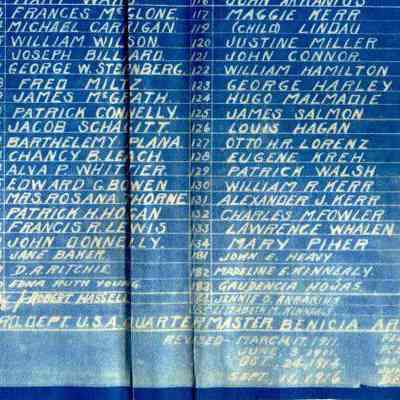 FRANCES McGLONE. 117 MAGGIE KERR
MICHAEL CARRIGAN 119 (CHILD) LINDAU
WILLIAM WILSON. 120 JUSTINE MILLER
JOSEPH BILLARD. 121 JOHN CONNOR.
GEORGE W. STENBERG. 122 WILLIAM HAMILTON
FRED MILTZ 123 GEORGE HARLEY.
JAMES McGRATH. 124 HUGO MALMADIE
PATRICK CONNELLY. 125 JAMES SALMON
JACOB SCHAGITT. 126 LOUIS HAGAN
BARTHELEMY PLANA. 127 OTTO H.R. LORENZ
CHANCY B. LEACH. 128 EUGENE KREH.
ALVA P. WHITTIER 129 PATRICK WALSH.
EDWARD G. BOWEN 130 WILLIAM R. KERR
MRS. ROSANA THORNE 131 ALEXANDER J. KERR
PATRICK H. HOGAN 132 CHARLES M. FOWLER
FRANCIS R. LEWIS 133 LAWRENCE WHALEN
JOHN DONNELLY. 134 MARY PIHER
JANE BAKER. 181 JOHN E. HEAVY
D.A. RITCHIE 182 MADELINE E. KINNEALY.
EDNA RUTH YOUNG 183 GAUDENCIA HOJAS.
ROBERT HASSELL JENNIE O.
ELIZABETH M.
DEPT U.S.A. QUARTERMASTER BENICIA
REVISED- MARCH, 17. 1911.
JUNE. 3. 1911.
OCT. 24. 1914
SEPT. 11. 1916